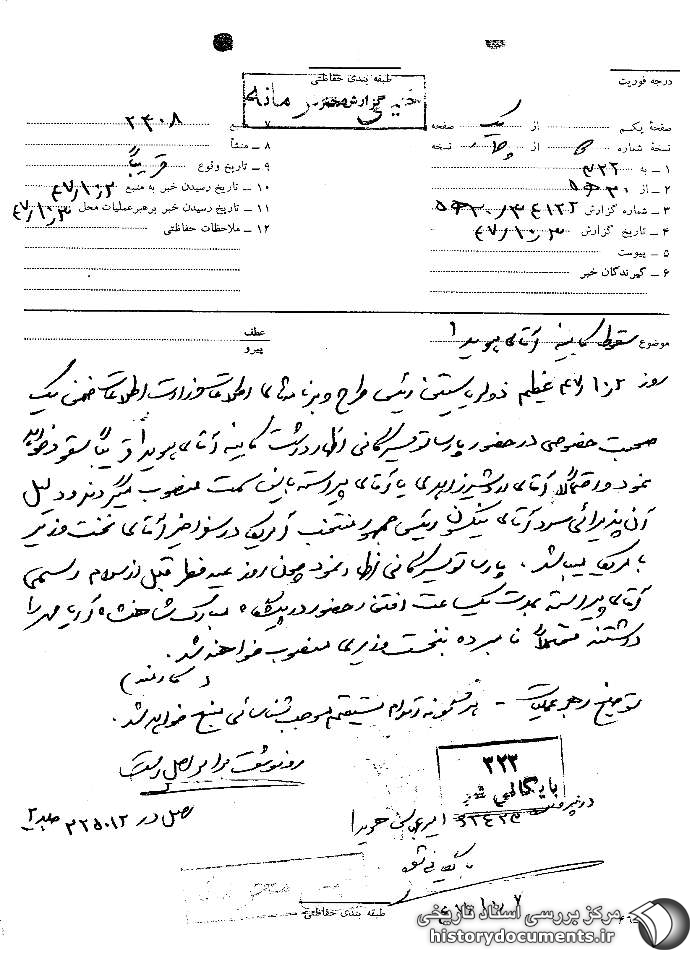 طبقه بندی حفاظتی
درجه فوریت
خیلی محرمانه
گزارش خبر
صفحه یکم از یک صفحه
نسخه شماره از نسخه
۱ – به ۳۲۲
۲ – از ۵ه۳۰
۳ – شماره گزارش ۵ه۳۰/۳۴۱۲۲
۴ – تاریخ گزارش ۴۷/۱۰/۳
۵ – پیوست
۶ – گیرندگان خبر
۷ منبع ۲۳۰۸
۸ – منشأ
۹ – تاریخ وقوع قریباً
۱۰ – تاریخ رسیدن خبر به منبع ۴۷/۱۰/۲
۱۱ – تاریخ رسیدن خبر برهبر عملیات محل ۴۷/۱۰/۳
۱۲ – ملاحظات حفاظتی
موضوع سقوط کابینه آقای هویدا
عطف
پیرو
روز ۴۷/۱۰/۲ عظیم ذوالریاستین رئیس طرح و برنامه‌های اطلاعات وزارت اطلاعات ضمن یک
صحبت خصوصی در حضور پارسا تویسرکانی اظهار داشت کابینه آقای هویدا قریباً سقوط خواهد
نمود و احتمالاً آقای اردشیر زاهدی یا آقای پیراسته باین سمت منصوب میگردند و دلیل
آن پذیرائی سرد آقای نیکسون رئیس جمهور منتخب آمریکا در سفر اخیر آقای نخست وزیر
بامریکا میباشد. پارسا تویسرکانی اظهار نمود چون روز عید فطر قبل از سلام رسمی
آقای پیراسته بمدت یکساعت افتخار حضور در پیشگاه مبارک شاهنشاه آریامهر را
داشتند محتملاً نامبرده بنخست وزیری منصوب خواهند شد.
توضیح رهبر عملیات – هر گونه اقدام مستقیم موجب شناسائی منبع خواهد شد.
رونوشت برابر اصل است
۳۲۳
بایگانی شد
در پرونده امیرعباس هویدا
اصل در ۳۲۵۰۱۲ جلد ۲
بایگانی شود
۴۷/۱۰/۷
طبقه بندی حفاظتی
مرکز بررسی اسناد تاریخی
historydocuments.ir